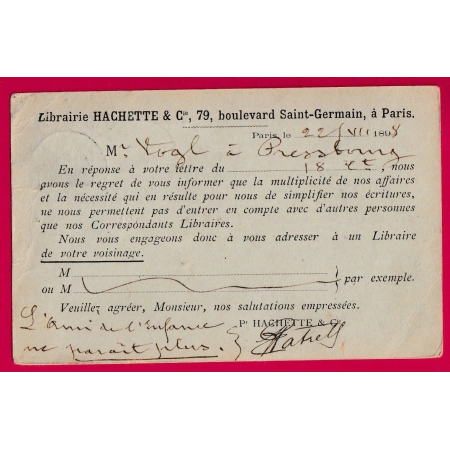 Librairie HACHETTE & Cie, 79, boulevard Saint-Germain, à Paris.
Paris, le 22/VII 1898
Mr Vogl à Pressbourg
En réponse à votre lettre du 18 ct, nous
avons le regret de vous informer que la multiplicité de nos affaires
et la nécessité qui en résulte pour nous de simplifier nos écritures,
ne nous permettent pas d'entrer en compte avec d'autres personnes
que nos Correspondants Libraires.
Nous vous engageons donc à vous adresser à un Libraire
de votre voisinage.
M
ou M par exemple.
Veuillez agréer, Monsieur, nos salutations empressées.
L'Ami de l'Enfance
Pr HACHETTE & Cie
ne paraît plus.